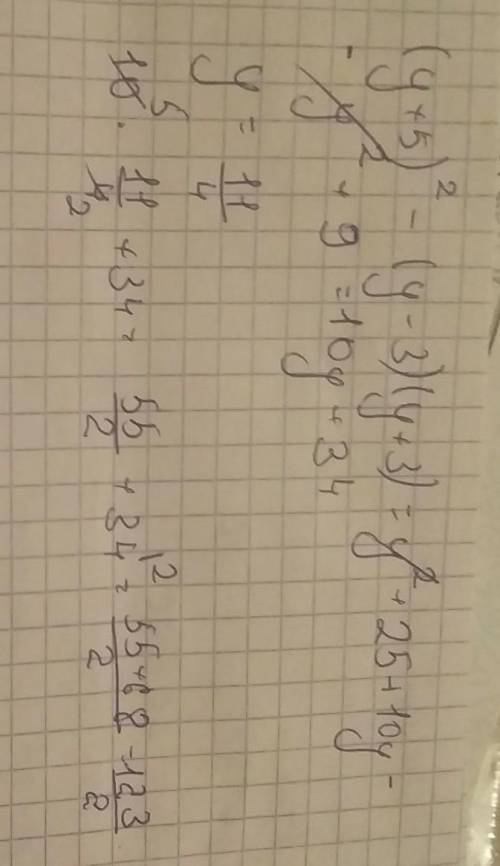 (y+5)² - (y-3)(y+3) = y² + 25 + 10y -
- y² + 9 = 10y + 34
y = 11/4
10⁵ · 11/4₂ + 34 = 55/2 + 34^{12} = 55+68/2 - 123/2